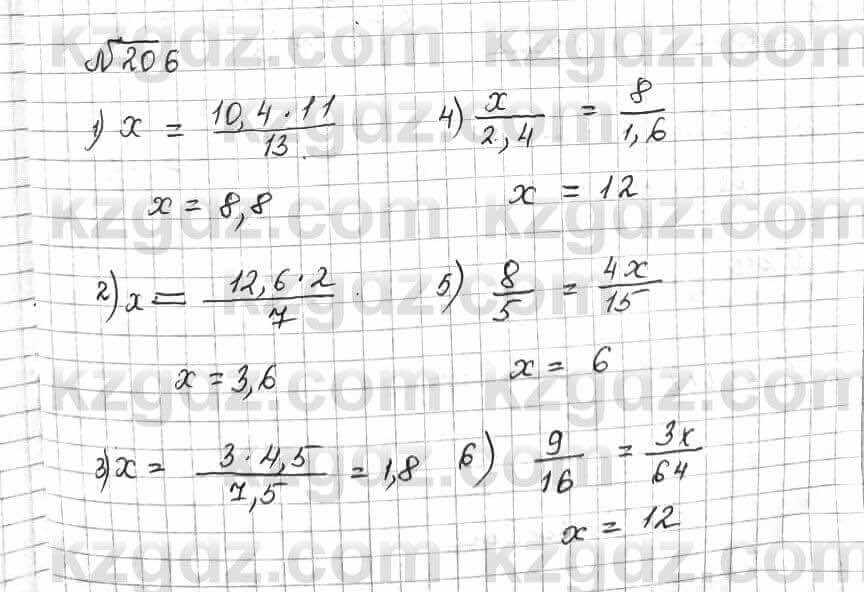 №206
1) x = 10,4·11/13
x = 8,8
2) x = 12,6·2/7
x = 3,6
3) x = 3·4,5/7,5 = 1,8
4) x/2,4 = 8/1,6
x = 12
5) 8/5 = 4x/15
x = 6
6) 9/16 = 3x/64
x = 12
kzgdz.com kzgdz.com
kzgdz.com kzgdz.com
kzgdz.com kzgdz.com
kzgdz.com kzgdz.com
kzgdz.com kzgdz.com
kzgdz.com kzgdz.com
kzgdz.com kzgdz.com